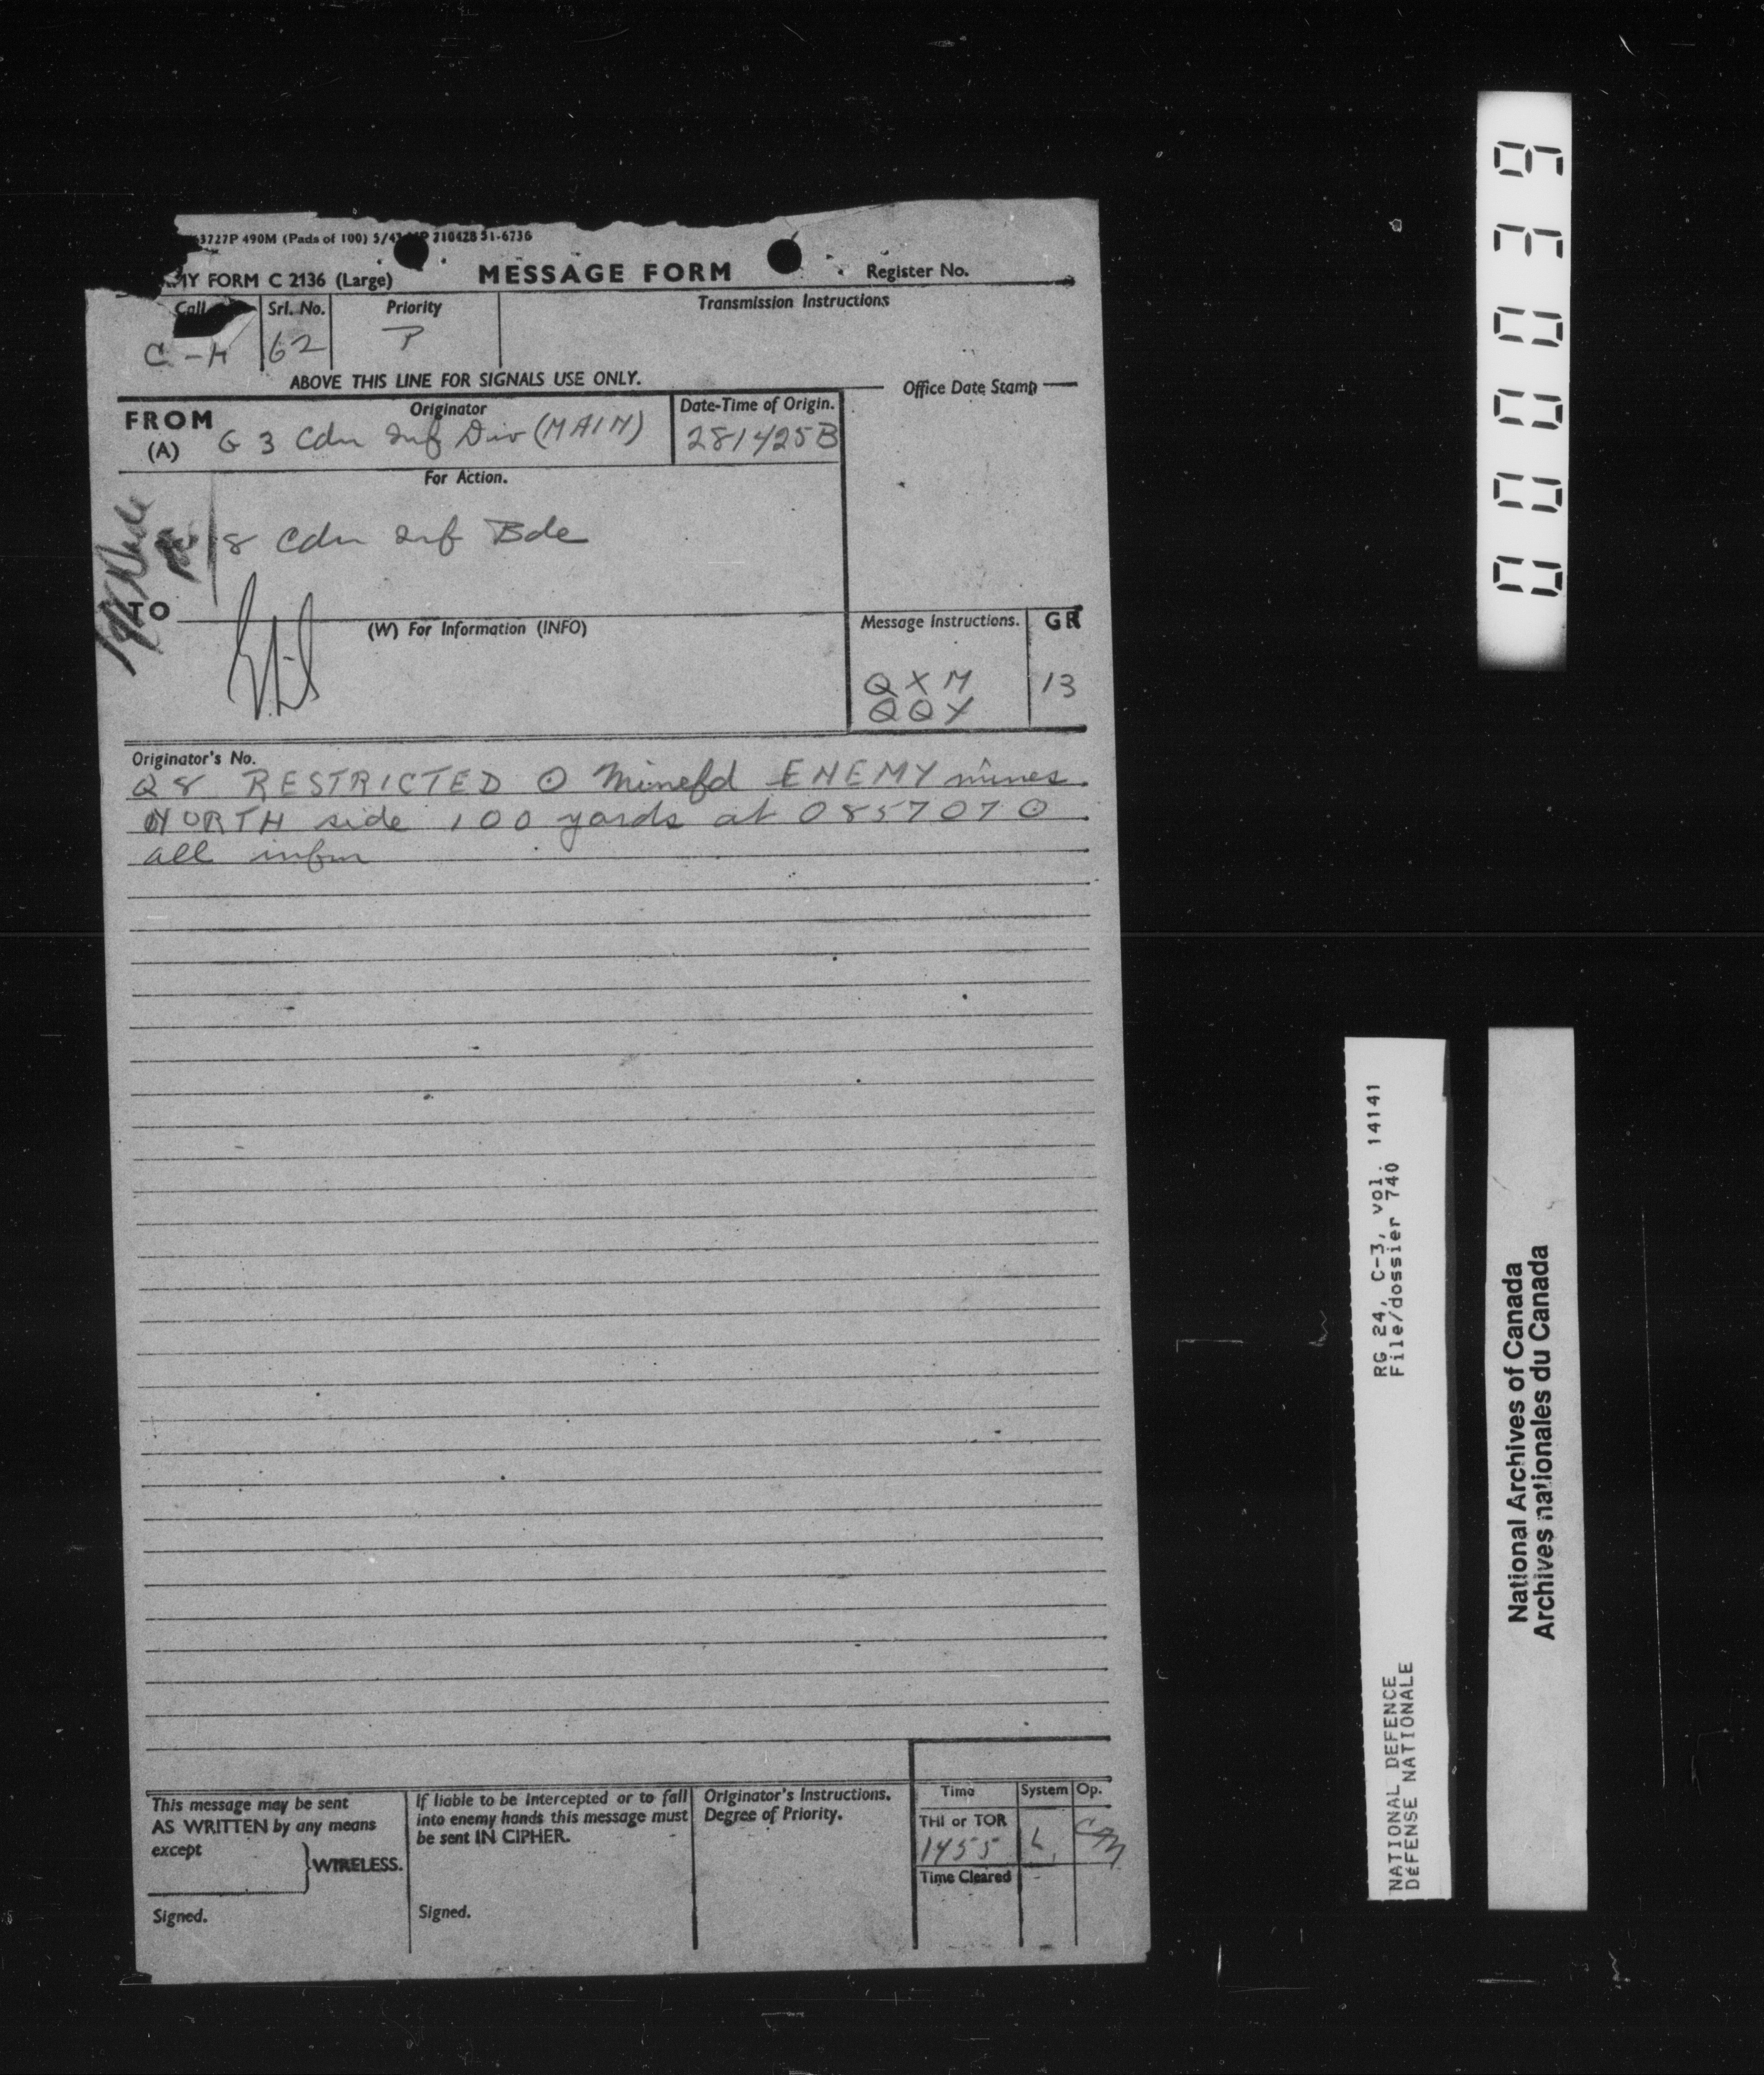 3727P 490M (Pads of 100) 5/43 210428 51-6736
MY FORM C 2136 (Large) MESSAGE FORM Register No.
Call Srl. No. Priority Transmission Instructions
C-H 62 P
ABOVE THIS LINE FOR SIGNALS USE ONLY.
Office Date Stamp
FROM Originator Date-Time of Origin.
(A) G 3 Cdn Inf Div (MAIN) 281425B
For Action.
8 Cdn Inf Bde
TO
(W) For Information (INFO)
Message Instructions. GR
QXM 13
QQY
Originator's No.
Q8 RESTRICTED ⊙ Minefd ENEMY mines
NORTH side 100 yards at 085707 ⊙
all infm
This message may be sent
AS WRITTEN by any means
except
WIRELESS.
Signed.
If liable to be intercepted or to fall
into enemy hands this message must
be sent IN CIPHER.
Signed.
Originator's Instructions.
Degree of Priority.
Time System Op.
THI or TOR
1455 L
Time Cleared
000039
RG 24, C-3, vol. 14141
File/dossier 740
NATIONAL DEFENCE
DéFENSE NATIONALE
National Archives of Canada
Archives nationales du Canada